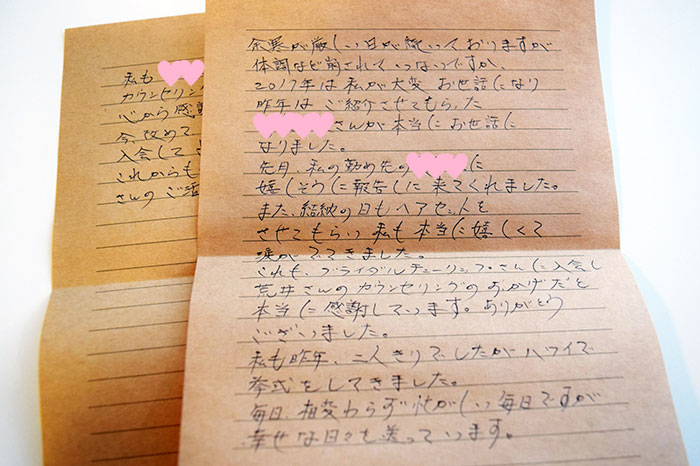 余寒が厳しい日が続いておりますが
体調など崩されていないですか、
2017年は私が大変お世話になり
昨年はご紹介させてもらった
さんが本当にお世話に
なりました。
先月、私の勤め先の に
嬉しそうに報告しに来てくれました。
また、結納の日もヘアセットを
させてもらい私も本当に嬉しくて
涙がでてきました。
これも、ブライダルチューリップさんに入会し
荒井さんのカウンセリングのおかげだと
本当に感謝しています。ありがとう
ございました。
私も昨年、二人きりでしたがハワイで
挙式をしてきました。
毎日、相変わらず忙がしい毎日ですが
幸せな日々を送っています。
私も
カウンセリング
心から感謝
今、改めて
入会して
これからも
さんのご活